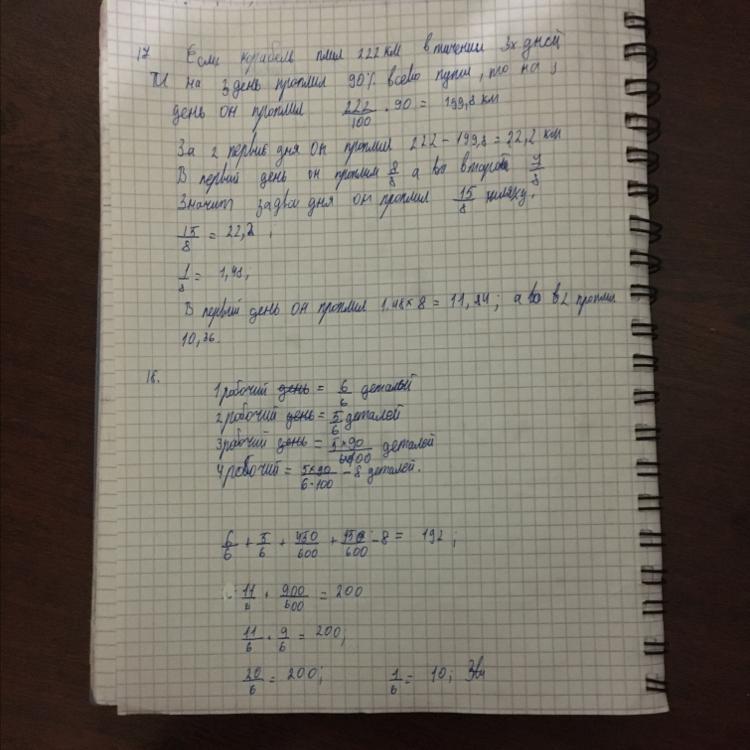 17 Если корабель плил 222 км в течении 3х дней
и на 3 день проплил 90% всего пути, то на 3
день он проплил 222/100 · 90 = 199,8 км
За 2 первие дня он проплил 222 - 199,8 = 22,2 км
В первий день он проплил 8/8 а во второй 7/8
Значит за два дня он проплил 15/8 шляху.
15/8 = 22,2 ;
1/8 = 1,48;
В первий день он проплил 1.48 × 8 = 11,84; а во в 2 проплил
10,36.
18.
1 рабочий день = 6/6 деталей
2 рабочий день = 5/6 деталей
3 рабочий день = 5×90/6·100 деталей
4 рабочий = 5×90/6·100 - 8 деталей.
6/6 + 5/6 + 450/600 + 450/600 - 8 = 192;
11/6 + 900/600 = 200
11/6 + 9/6 = 200;
20/6 = 200; 1/6 = 10;